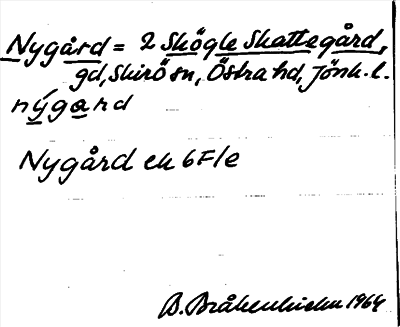 Nygård = 2 Skögle Skattegård,
gd, Skirö sn, Östra hd, Jönk. l.
nýgaṇd
Nygård ek 6F/e
B. Bråkenhielm 1964